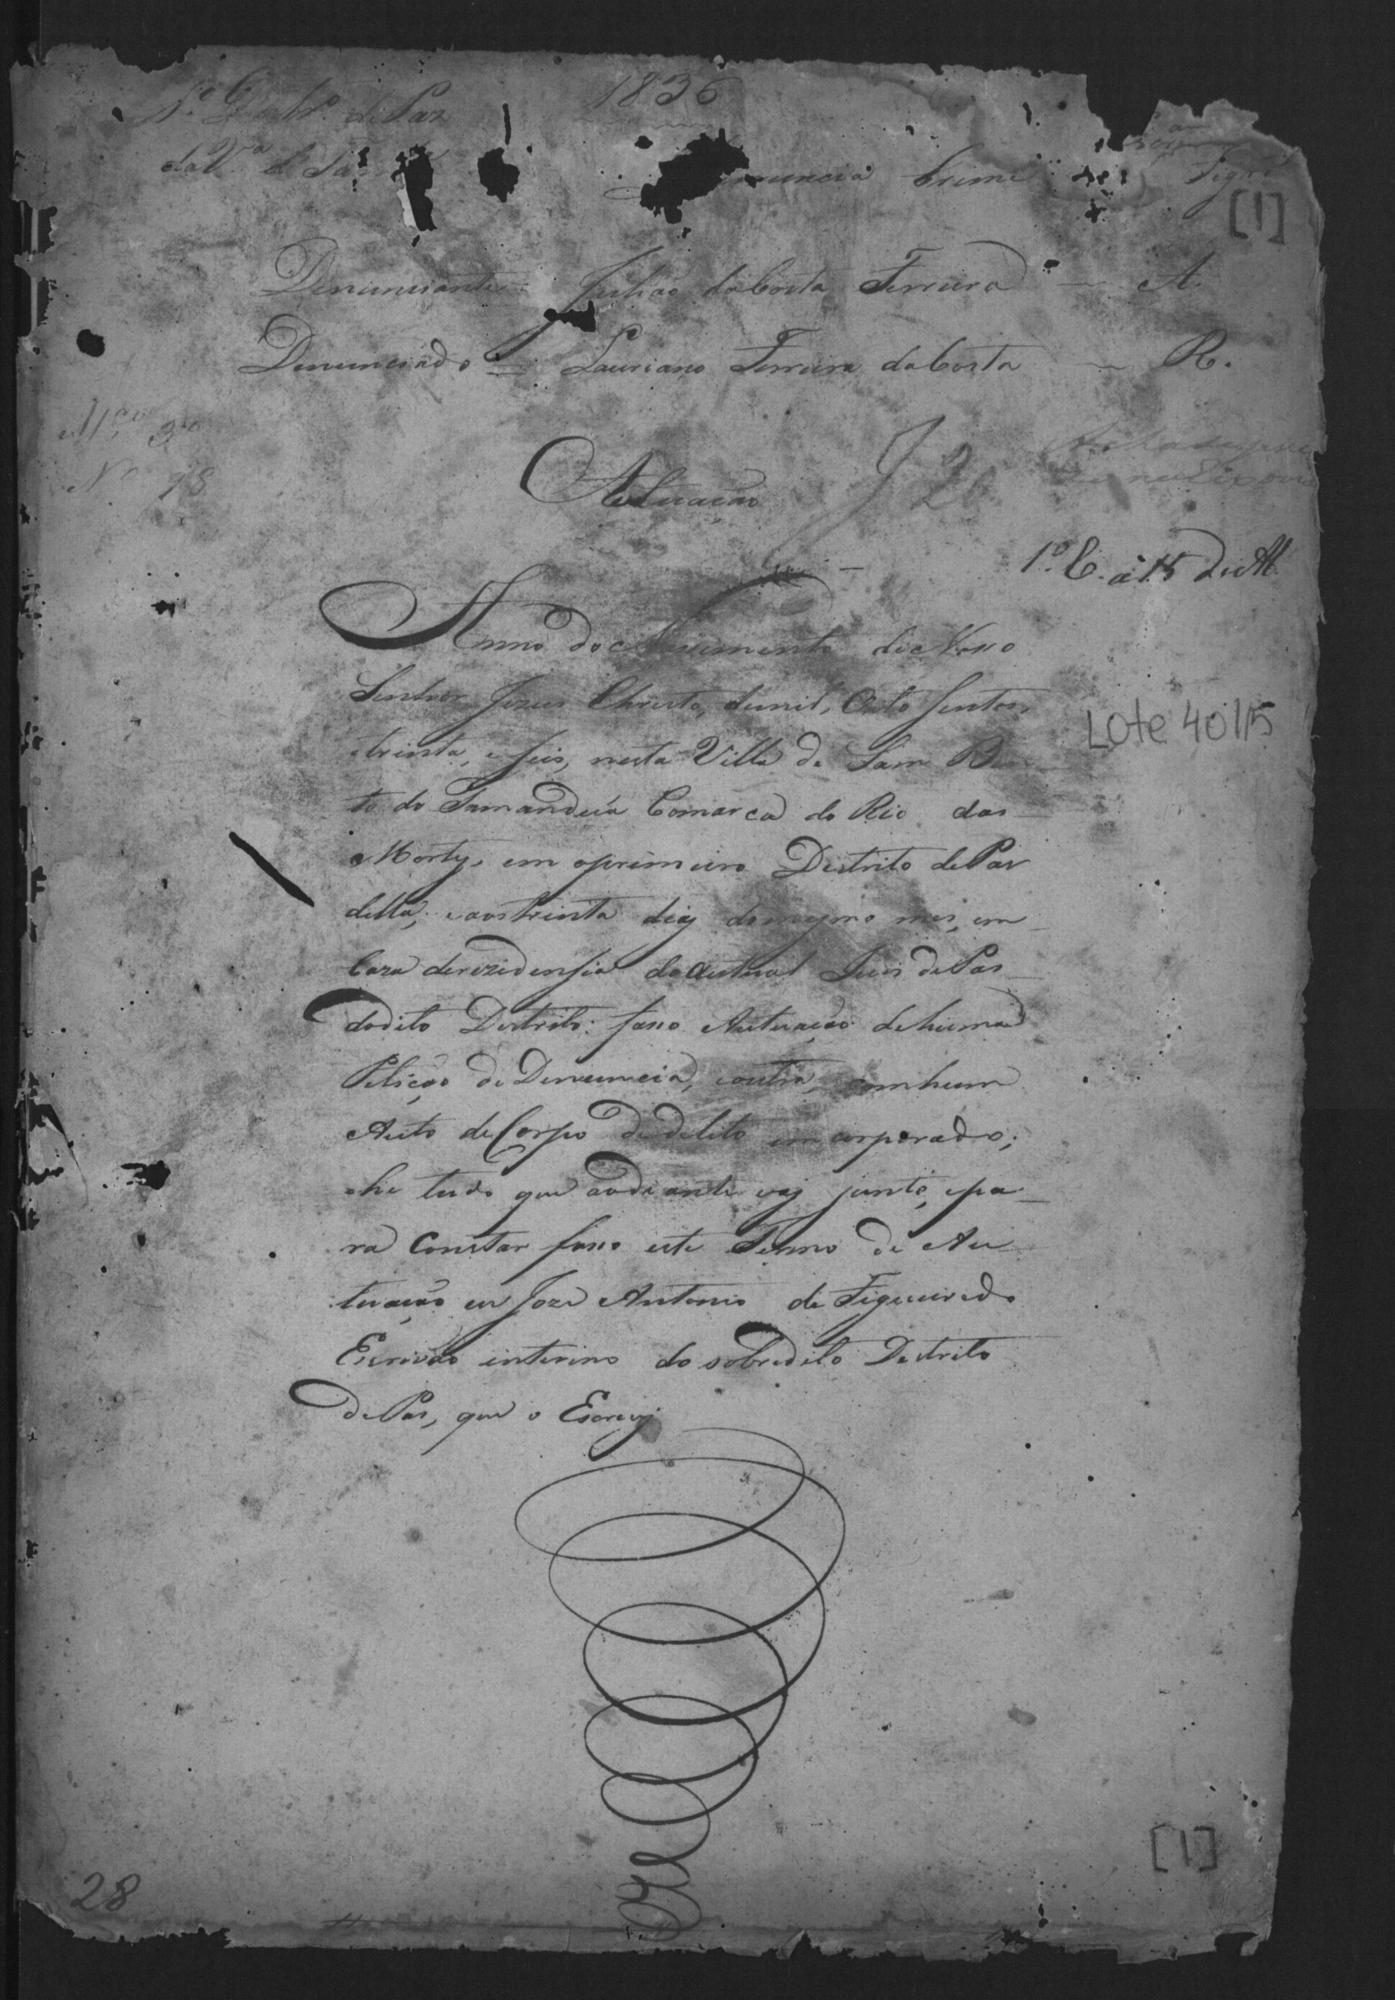 1836
da V.ª de
Crime
[1]
Denunciante = Julião da Costa Ferreira — A.
Denunciado = Lauriano Ferreira da Costa — R.
N.º 98
Autuação
1.º C. a 15 de
Anno do Nascimento de Nosso
Senhor Jezus Christo, de mil, Oito Sentos,
e trinta, e seis, nesta Villa de Sam Ben
to do Tamanduá Comarca do Rio das
Mortes, em o primeiro Destrito de Pas
della, e aos trinta dias do mesmo mes, em
Caza de rezidensia do actual Juis de Pas
do dito Destrito: faso Autuação de huma
Petição de Denuncia, com hum
Auto de Corpo de delito emcorporado;
he tudo que ao diante vai junto, e pa
ra constar faso este Termo de Au
tuação eu Joze Antonio de Figueiredo
Escrivão interino do sobredito Destrito
de Pas, que o Escrevy
Lote 401/15
[1]
28